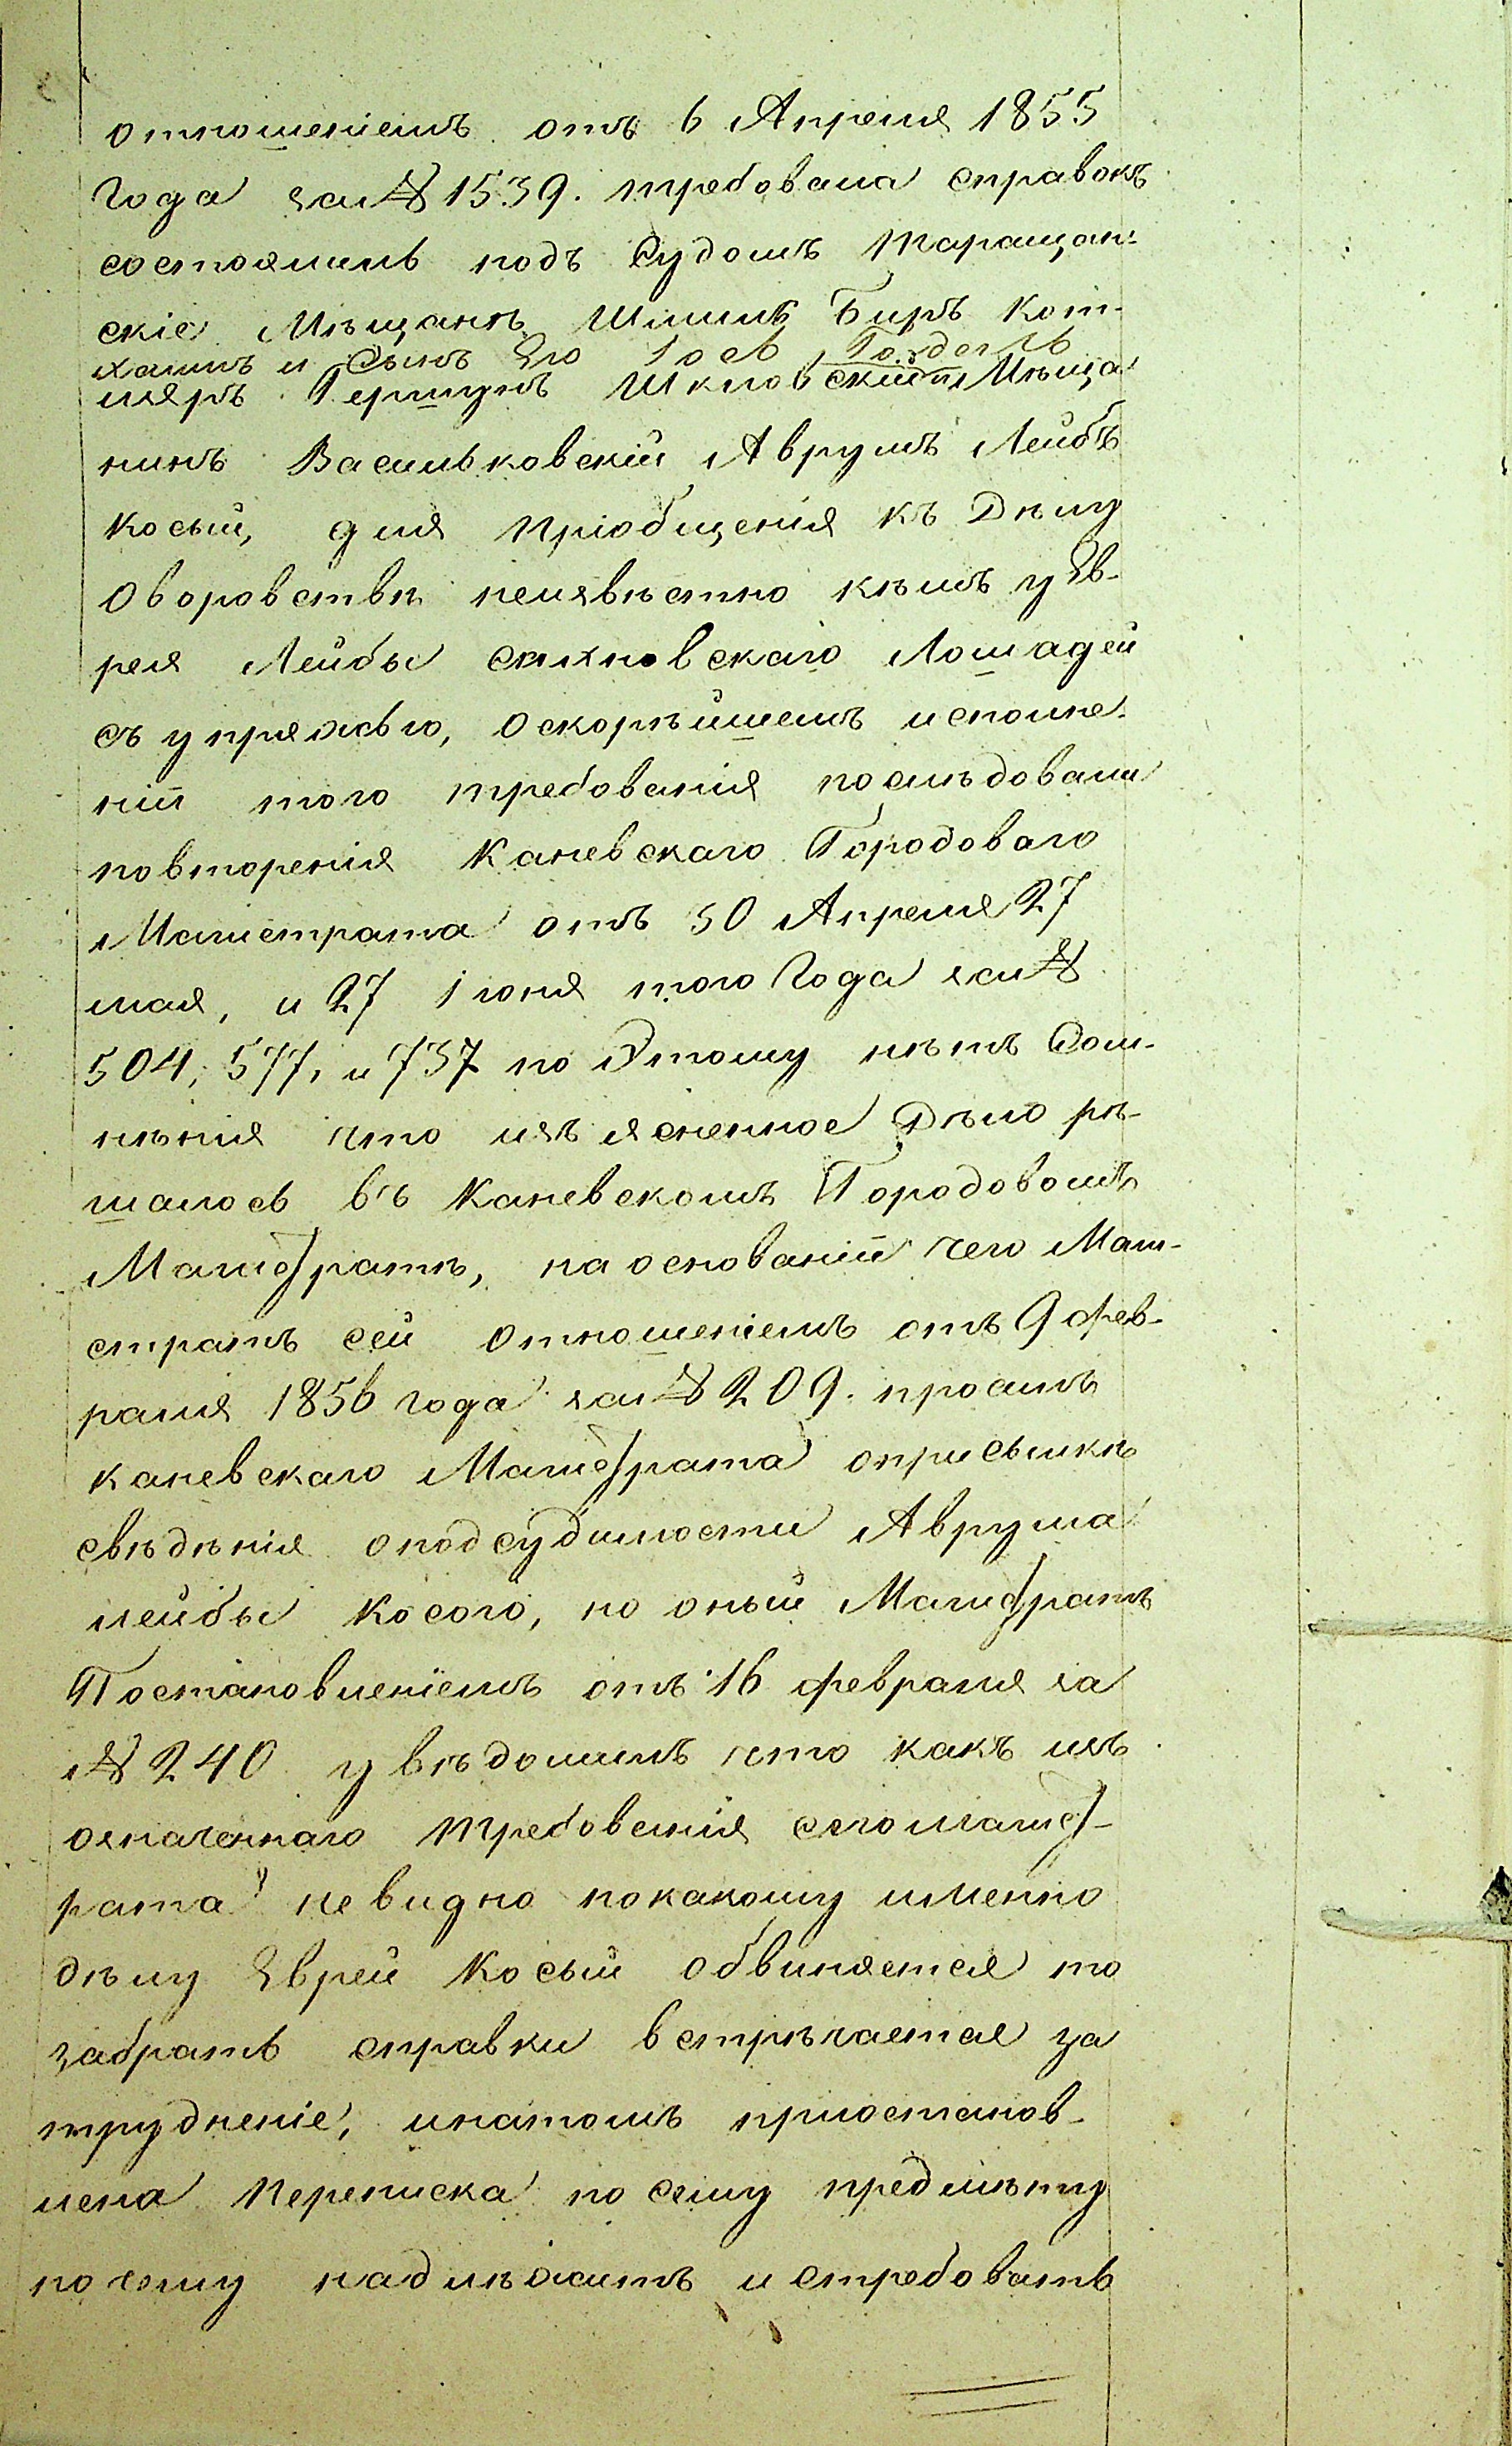 отношеніемъ отъ 6 Апреля 1855
Года за № 1539. требовала справокъ
состоялиль подъ Судомъ Таращан-
скіе Мѣщанѣ Шлимъ Биръ Кот-
и Сынъ Его Іось
ляръ Гершунъ Шкловскій и Мѣща
нинъ Васильковскій Аврумъ Лейбъ
Косый, для пріобщенія къ Дѣлу
Оворовствѣ неизвѣстно кѣмъ у Ев-
рея Лейбы Сахновскаго Лошадей
съ упряжью, Оскорѣйшемъ исполне-
ніи того требованія последовали
повторенія Каневскаго Городоваго
Магистрата отъ 30 Апреля 27
мая, и 27 Іюня того Года за №
504, 577, и 737 по Этому нѣтъ Сом-
нѣнія что изъясненное Дѣло рѣ-
шалось въ Каневскомъ Городовомъ
Магистратѣ, на основаніи чего Маги-
стратъ сей Отношеніемъ отъ 9 фев-
раля 1856 года за № 209. просилъ
каневскаго Магистрата оприсылкѣ
свѣдѣнія оподсудимости Аврума
лейбы Косого, но оный Магистратъ
Постановленіемъ отъ 16 февраля за
№ 240 увѣдомилъ что какъ изъ
означеннаго требованія сегомагист-
рата невидно покакому именно
дѣлу Еврей Косый обвиняется то
забрать справки встрѣчается за
трудненіе, инатомъ пріостанов-
лена Переписка по сему предмѣту
по чему надлѣжитъ истребовать